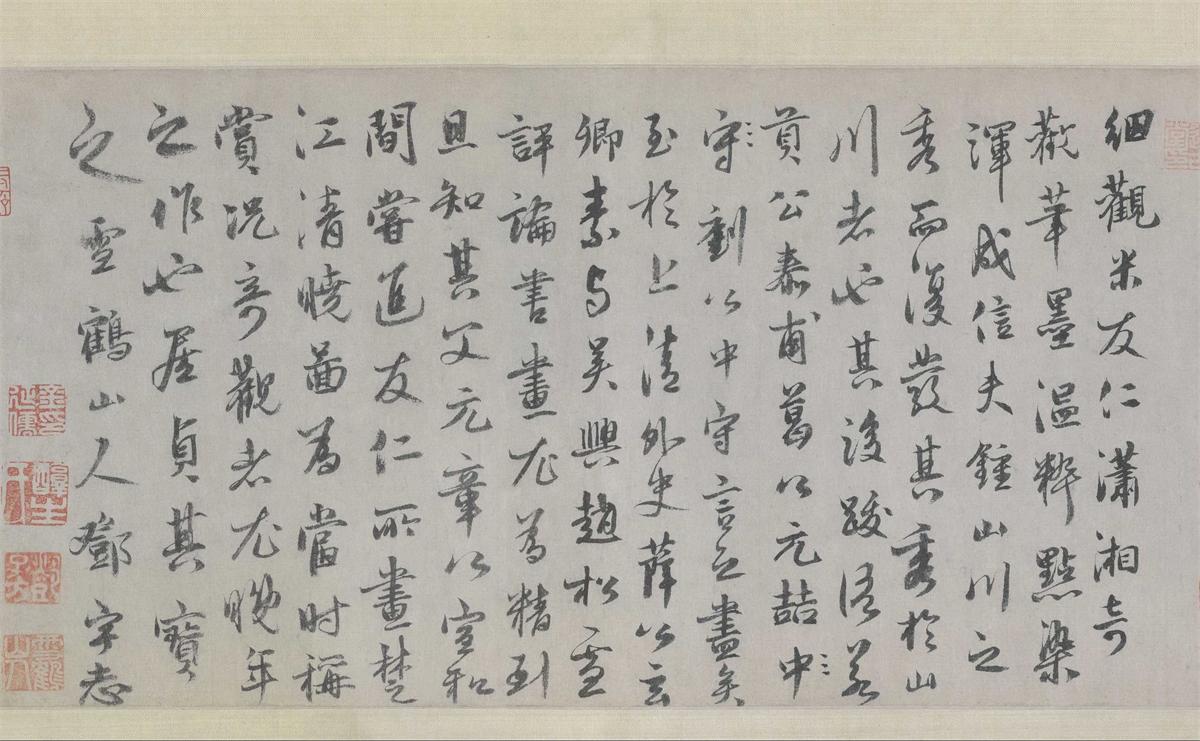 細觀米友仁瀟湘奇
觀筆墨溫粹點染
渾成信夫鍾山川之
秀而復發其秀於山
川者也其後跋語若
貢公泰甫葛公元喆中
守劉公中守言之盡矣
至於上清外史薛公玄
卿素與吳興趙松雪
評論書畫尤為精到
且知其父元章公宣和
間嘗進友仁所畫楚
江清曉圖為當時稱
賞況奇觀者尤晚年
之作也廛貞其寶
之雲鶴山人鄧宇志